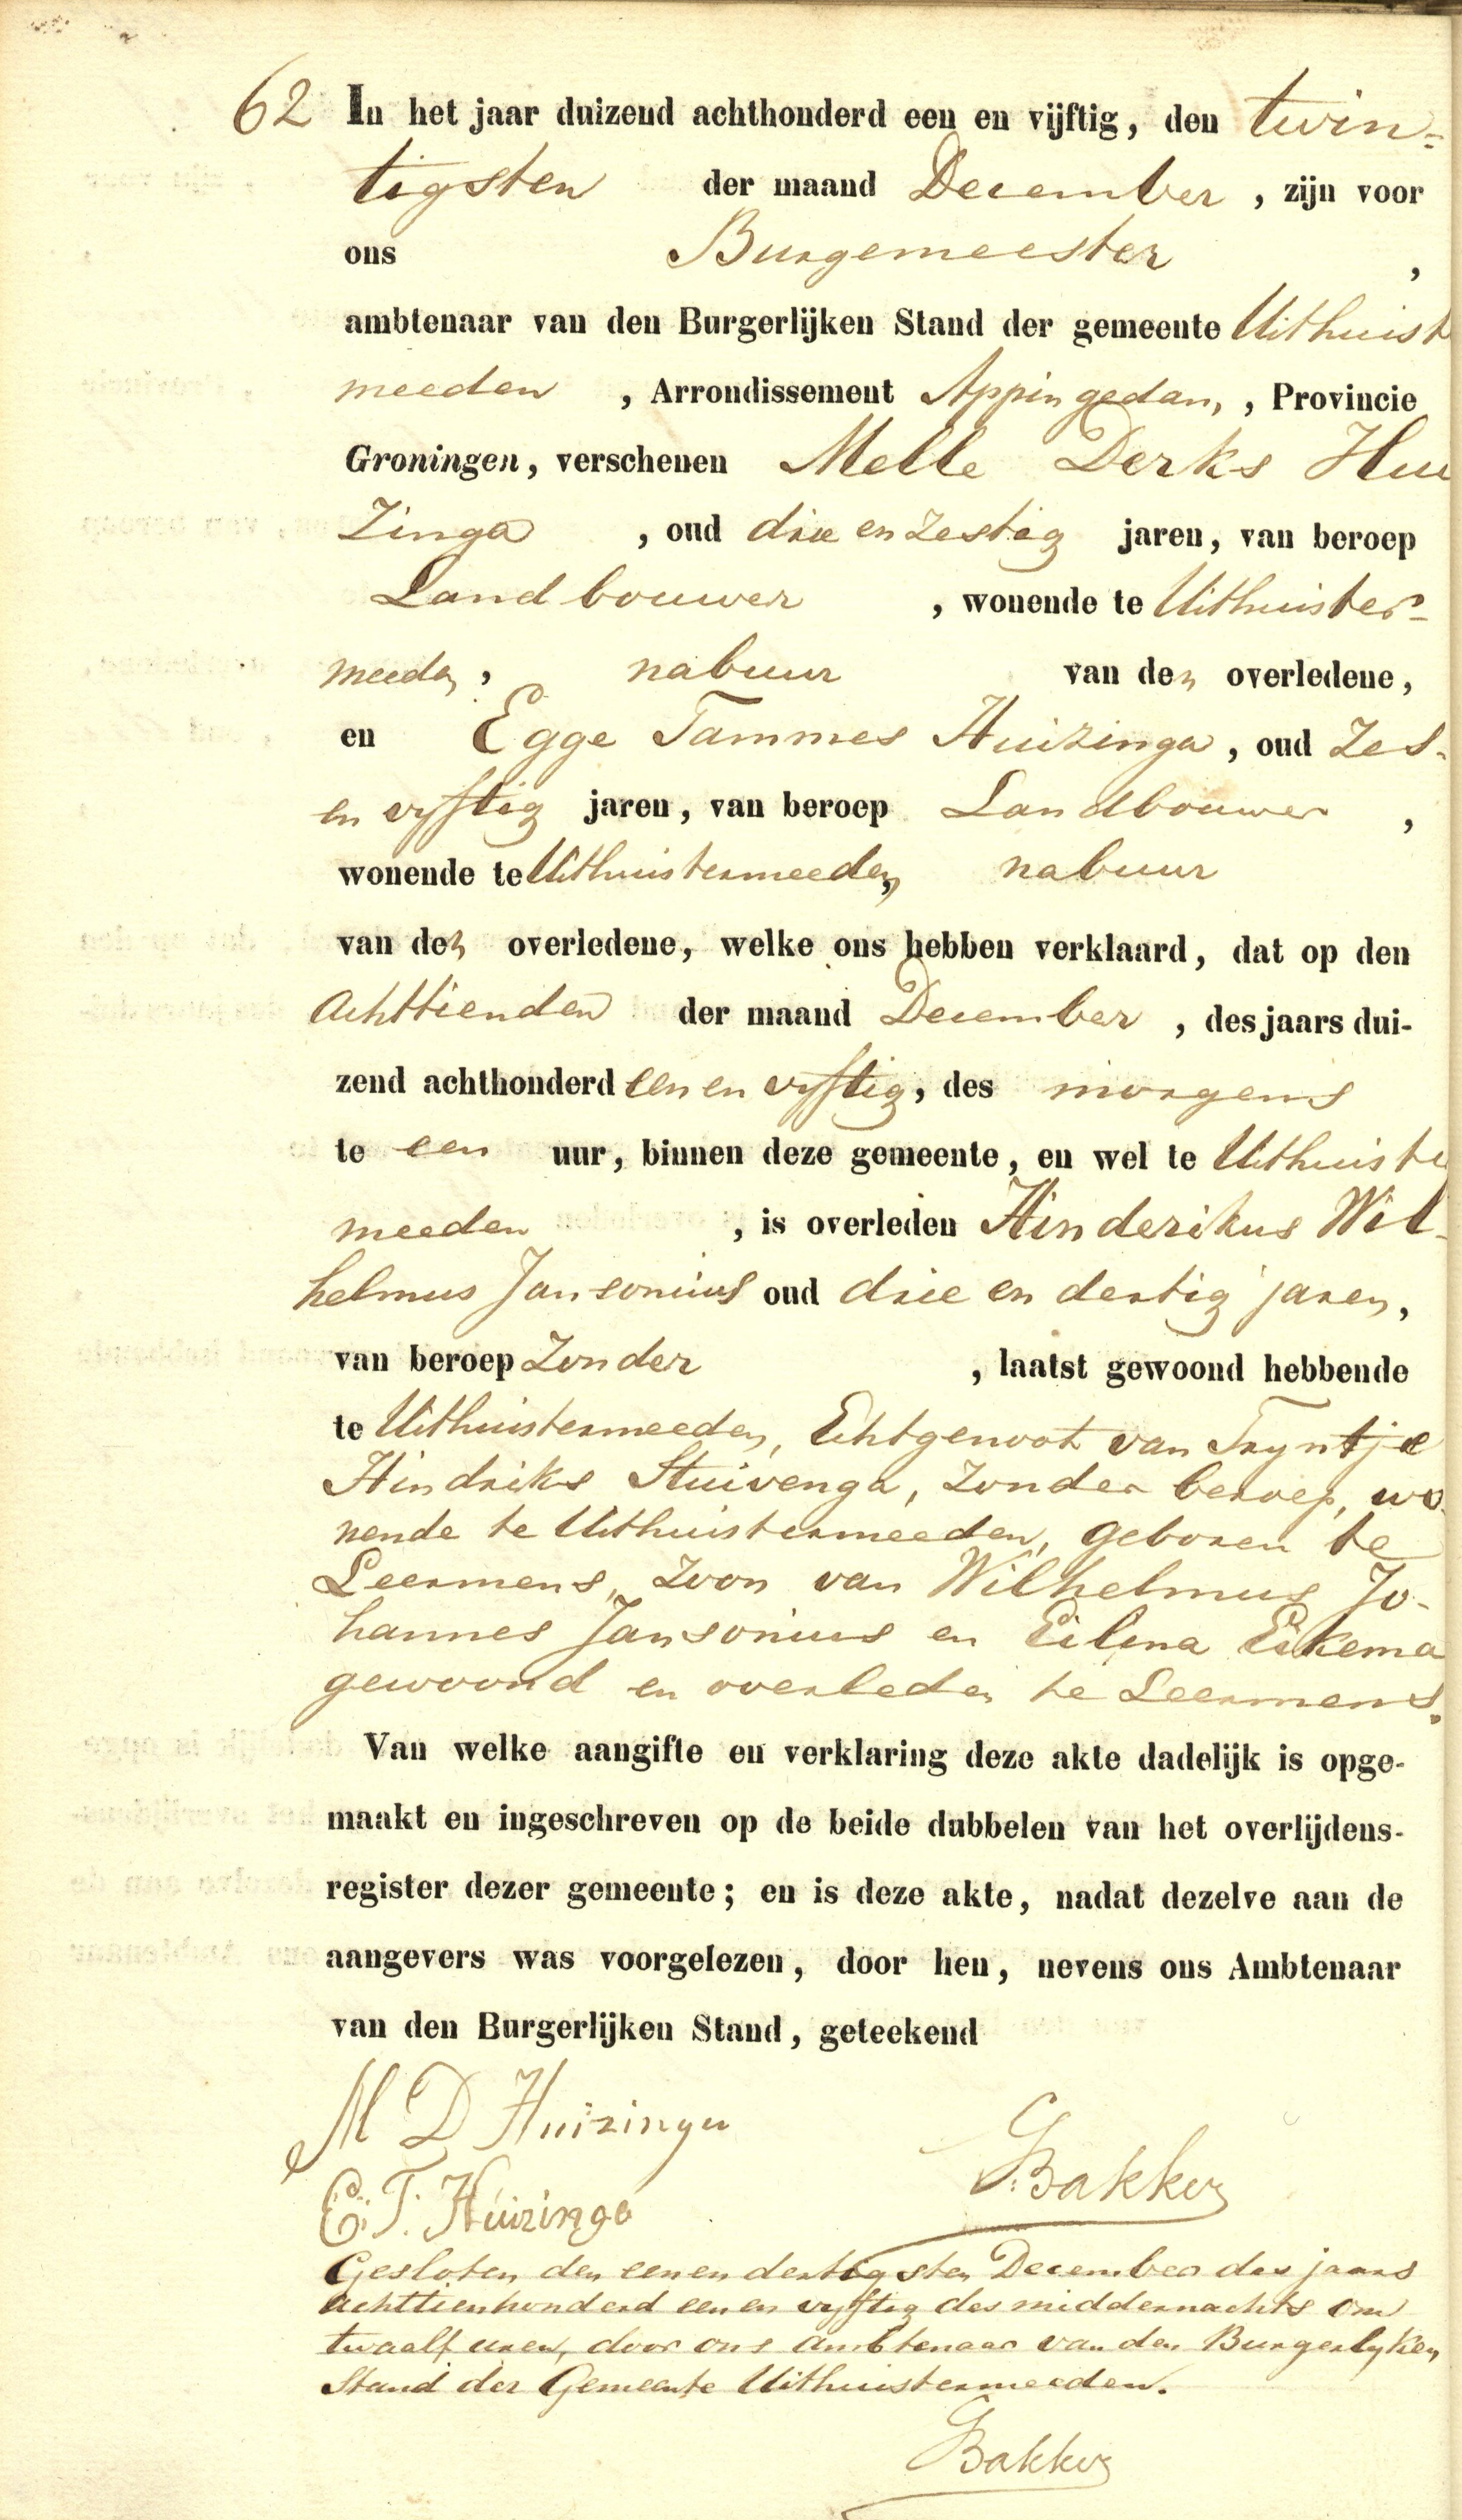 62 In het jaar duizend achthonderd een en vijftig, den twin=
tigsten der maand December, zijn voor
ons Burgemeester,
ambtenaar van den Burgerlijken Stand der gemeente Uithuist
meeden, Arrondissement Appingedam, , Provincie
Groningen, verschenen Melle Derks Hui
zinga, oud drie en zestig jaren, van beroep
Landbouwer, wonende te Uithuister=
meeden, nabuur van den overledene,
en Egge Tammes Huizinga, oud zes-
en vyftig jaren, van beroep Landbouwer,
wonende te Uithuistermeeden, nabuur
van den overledene, welke ons hebben verklaard, dat op den
achttienden der maand December, des jaars dui-
zend achthonderd een en vyftig, des morgens
te een uur, binnen deze gemeente, en wel te Uithuister
meeden, is overleden Hinderikus Wil-
helmus Jansonius oud drie en dertig jaren,
van beroep zonder, laatst gewoond hebbende
te Uithuistermeeden, Echtgenoot van Tryntje
Hindriks Stuivenga, zonder beroep, wo-
nende te Uithuistermeeden, geboren te
Leermens, zoon van Wilhelmus Jo-
hannes Jansonius en Eilena Eskema
gewoond en overleden te Leermens.
Van welke aangifte en verklaring deze akte dadelijk is opge-
maakt en ingeschreven op de beide dubbelen van het overlijdens-
register dezer gemeente; en is deze akte, nadat dezelve aan de
aangevers was voorgelezen, door hen, nevens ons Ambtenaar
van den Burgerlijken Stand, geteekend
M D Huizinga
G. Bakker
E. T. Huizinga
Gesloten den een en dertigsten December des jaars
achttienhonderd een en vyftig des middernachts om
twaalf uren, door ons ambtenaar van den Burgerlyken
Stand der Gemeente Uithuistermeeden.
G Bakker